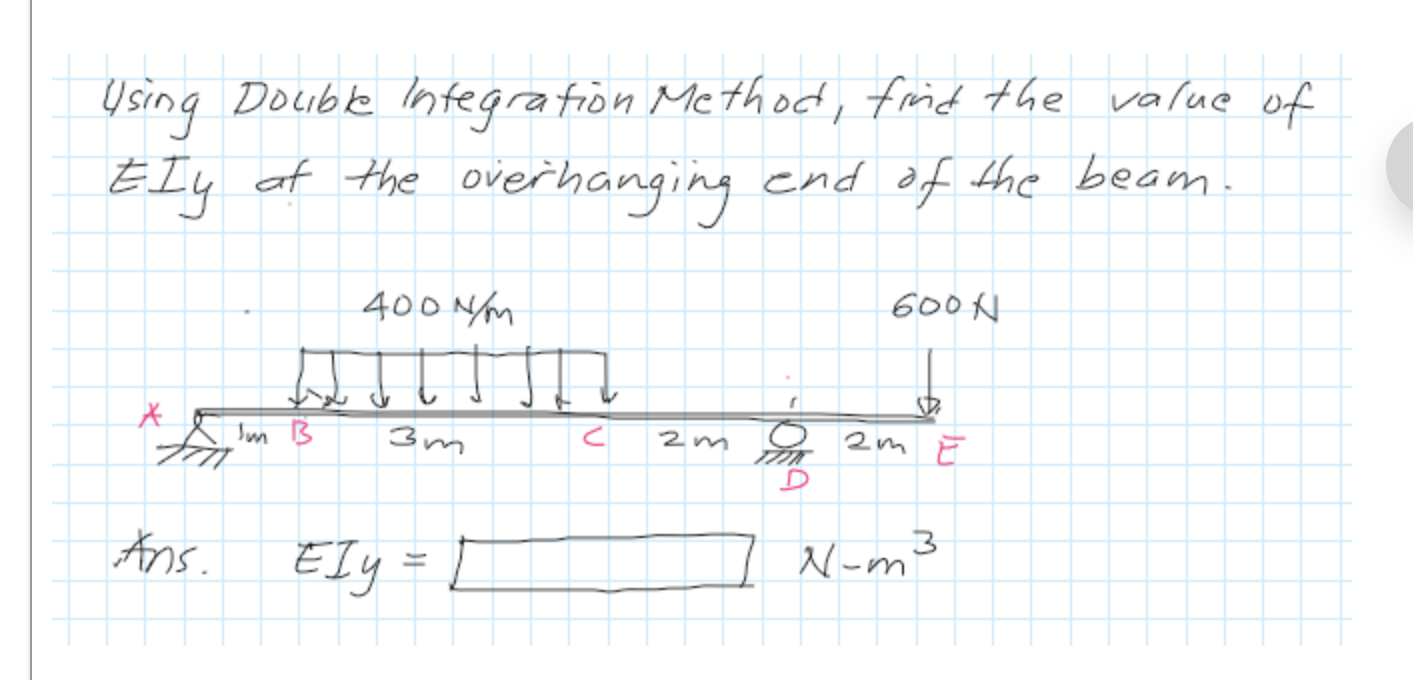 Using Double Integration Method, find the value of
EIy at the overhanging end of the beam.
400 N/m 600 N
A 1m B 3m C 2m D 2m E
Ans. EIy = N-m³